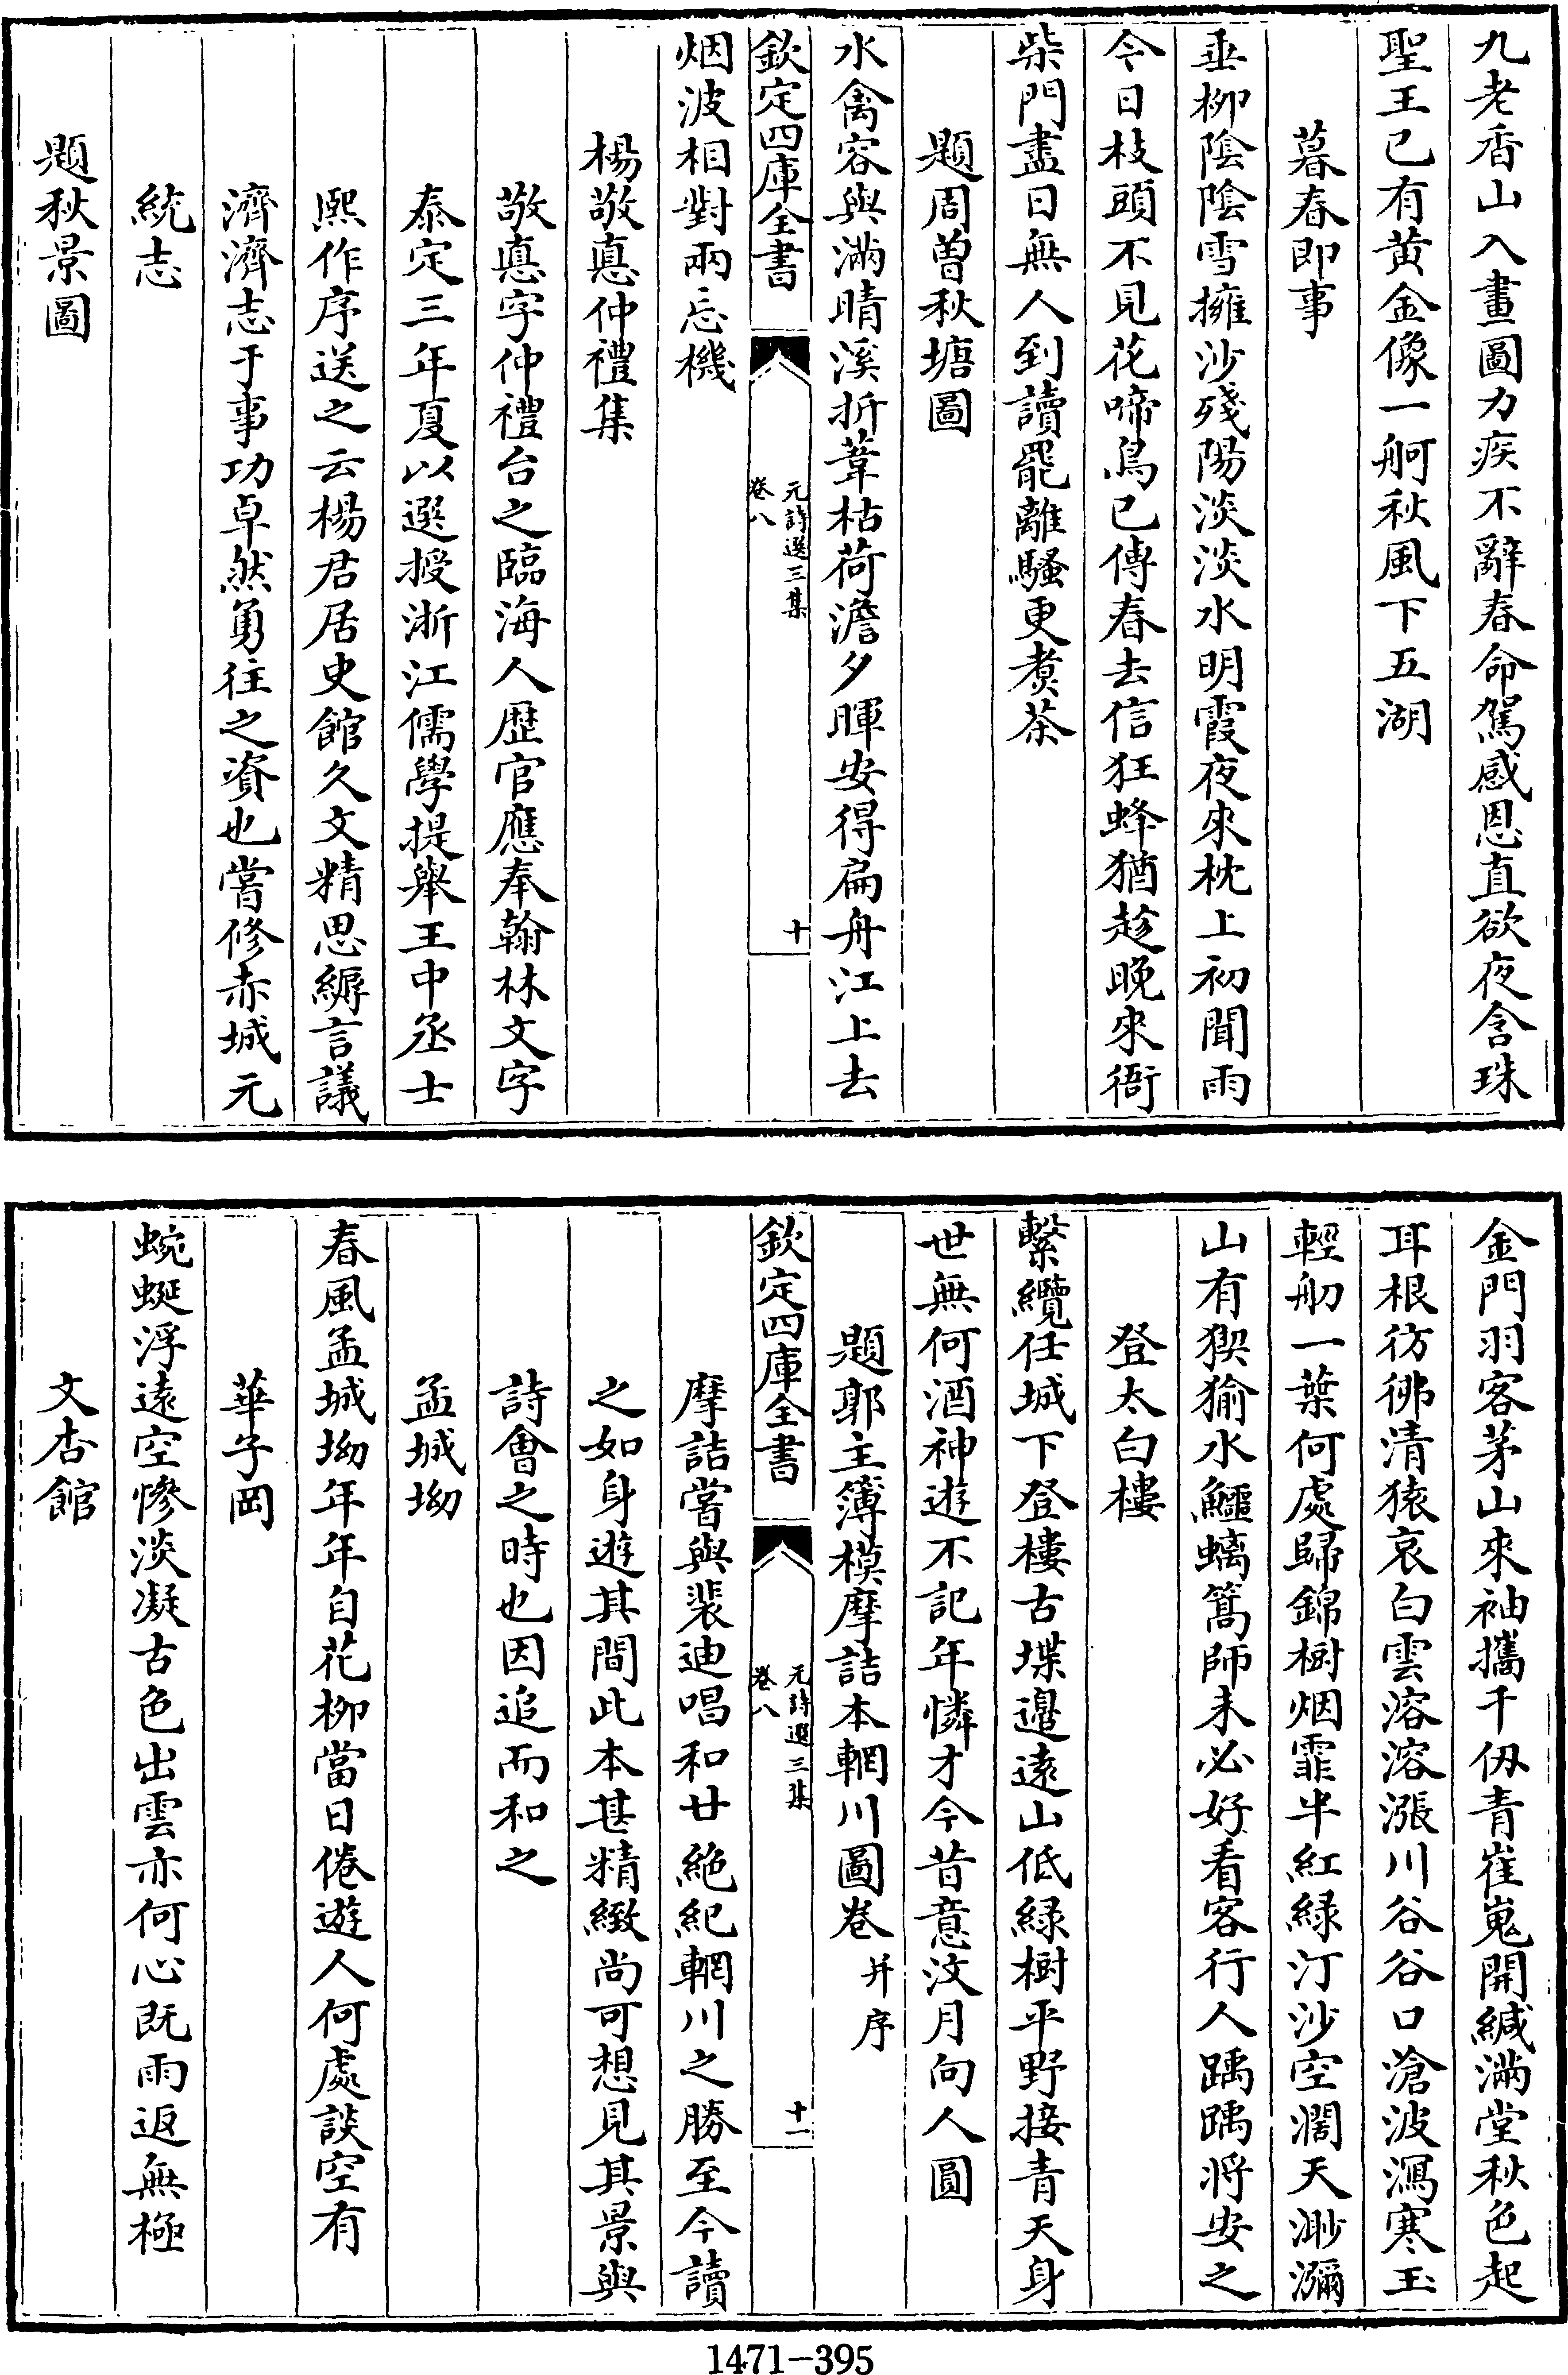 九老香山入畫圖力疾不辭春命駕感恩直欲夜含珠
聖王已有黄金像一舸秋風下五湖
暮春即事
垂柳陰陰雪擁沙殘陽淡淡水明霞夜來枕上初聞雨
今日枝頭不見花啼鳥已傳春去信狂蜂猶趁晚來衙
柴門盡日無人到讀罷離騷更煮茶
題周曽秋塘圖
水禽容與滿晴溪折葦枯荷澹夕暉安得扁舟江上去
欽定四庫全書
元詩選三集
卷八
十
烟波相對兩忘機
楊敬悳仲禮集
敬悳字仲禮台之臨海人歷官應奉翰林文字
泰定三年夏以選授浙江儒學提舉王中丞士
熙作序送之云楊君居史館久文精思縟言議
濟濟志于事功卓然勇往之資也嘗修赤城元
統志
題秋景圖
金門羽客茅山來袖攜千仭青崔嵬開緘滿堂秋色起
耳根彷彿清猿哀白雲溶溶漲川谷谷口滄波瀉寒玉
輕舠一葉何處歸錦樹烟霏半紅緑汀沙空濶天渺瀰
山有猰㺄水鱷螭篙師未必好看客行人踽踽將安之
登太白樓
繫纜任城下登樓古堞邉遠山低緑樹平野接青天身
世無何酒神遊不記年憐才今昔意汶月向人圓
題郭主簿模摩詰本輞川圖卷并序
摩詰嘗與裴迪唱和廿絶紀輞川之勝至今讀
之如身遊其間此本甚精緻尚可想見其景與
詩會之時也因追而和之
孟城坳
春風孟城坳年年自花柳當日倦遊人何處談空有
華子岡
蜿蜒浮遠空慘淡凝古色出雲亦何心既雨返無極
文杏館
欽定四庫全書
元詩選三集
卷八
十一
1471-395